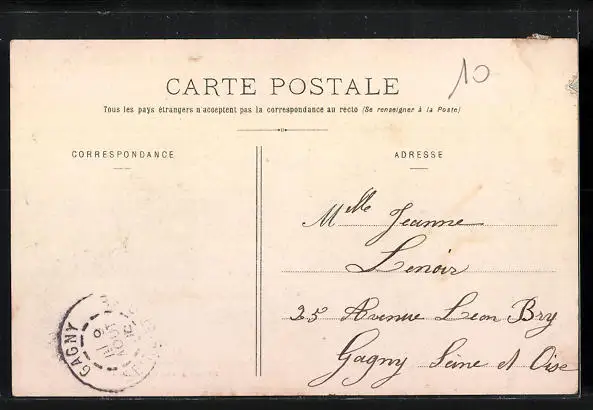 10
CARTE POSTALE
Tous les pays étrangers n'acceptent pas la correspondance au recto (Se renseigner à la Poste)
CORRESPONDANCE
ADRESSE
Mlle Jeanne
Lenoir
25 Avenue Léon Bry
Gagny Seine et Oise
GAGNY